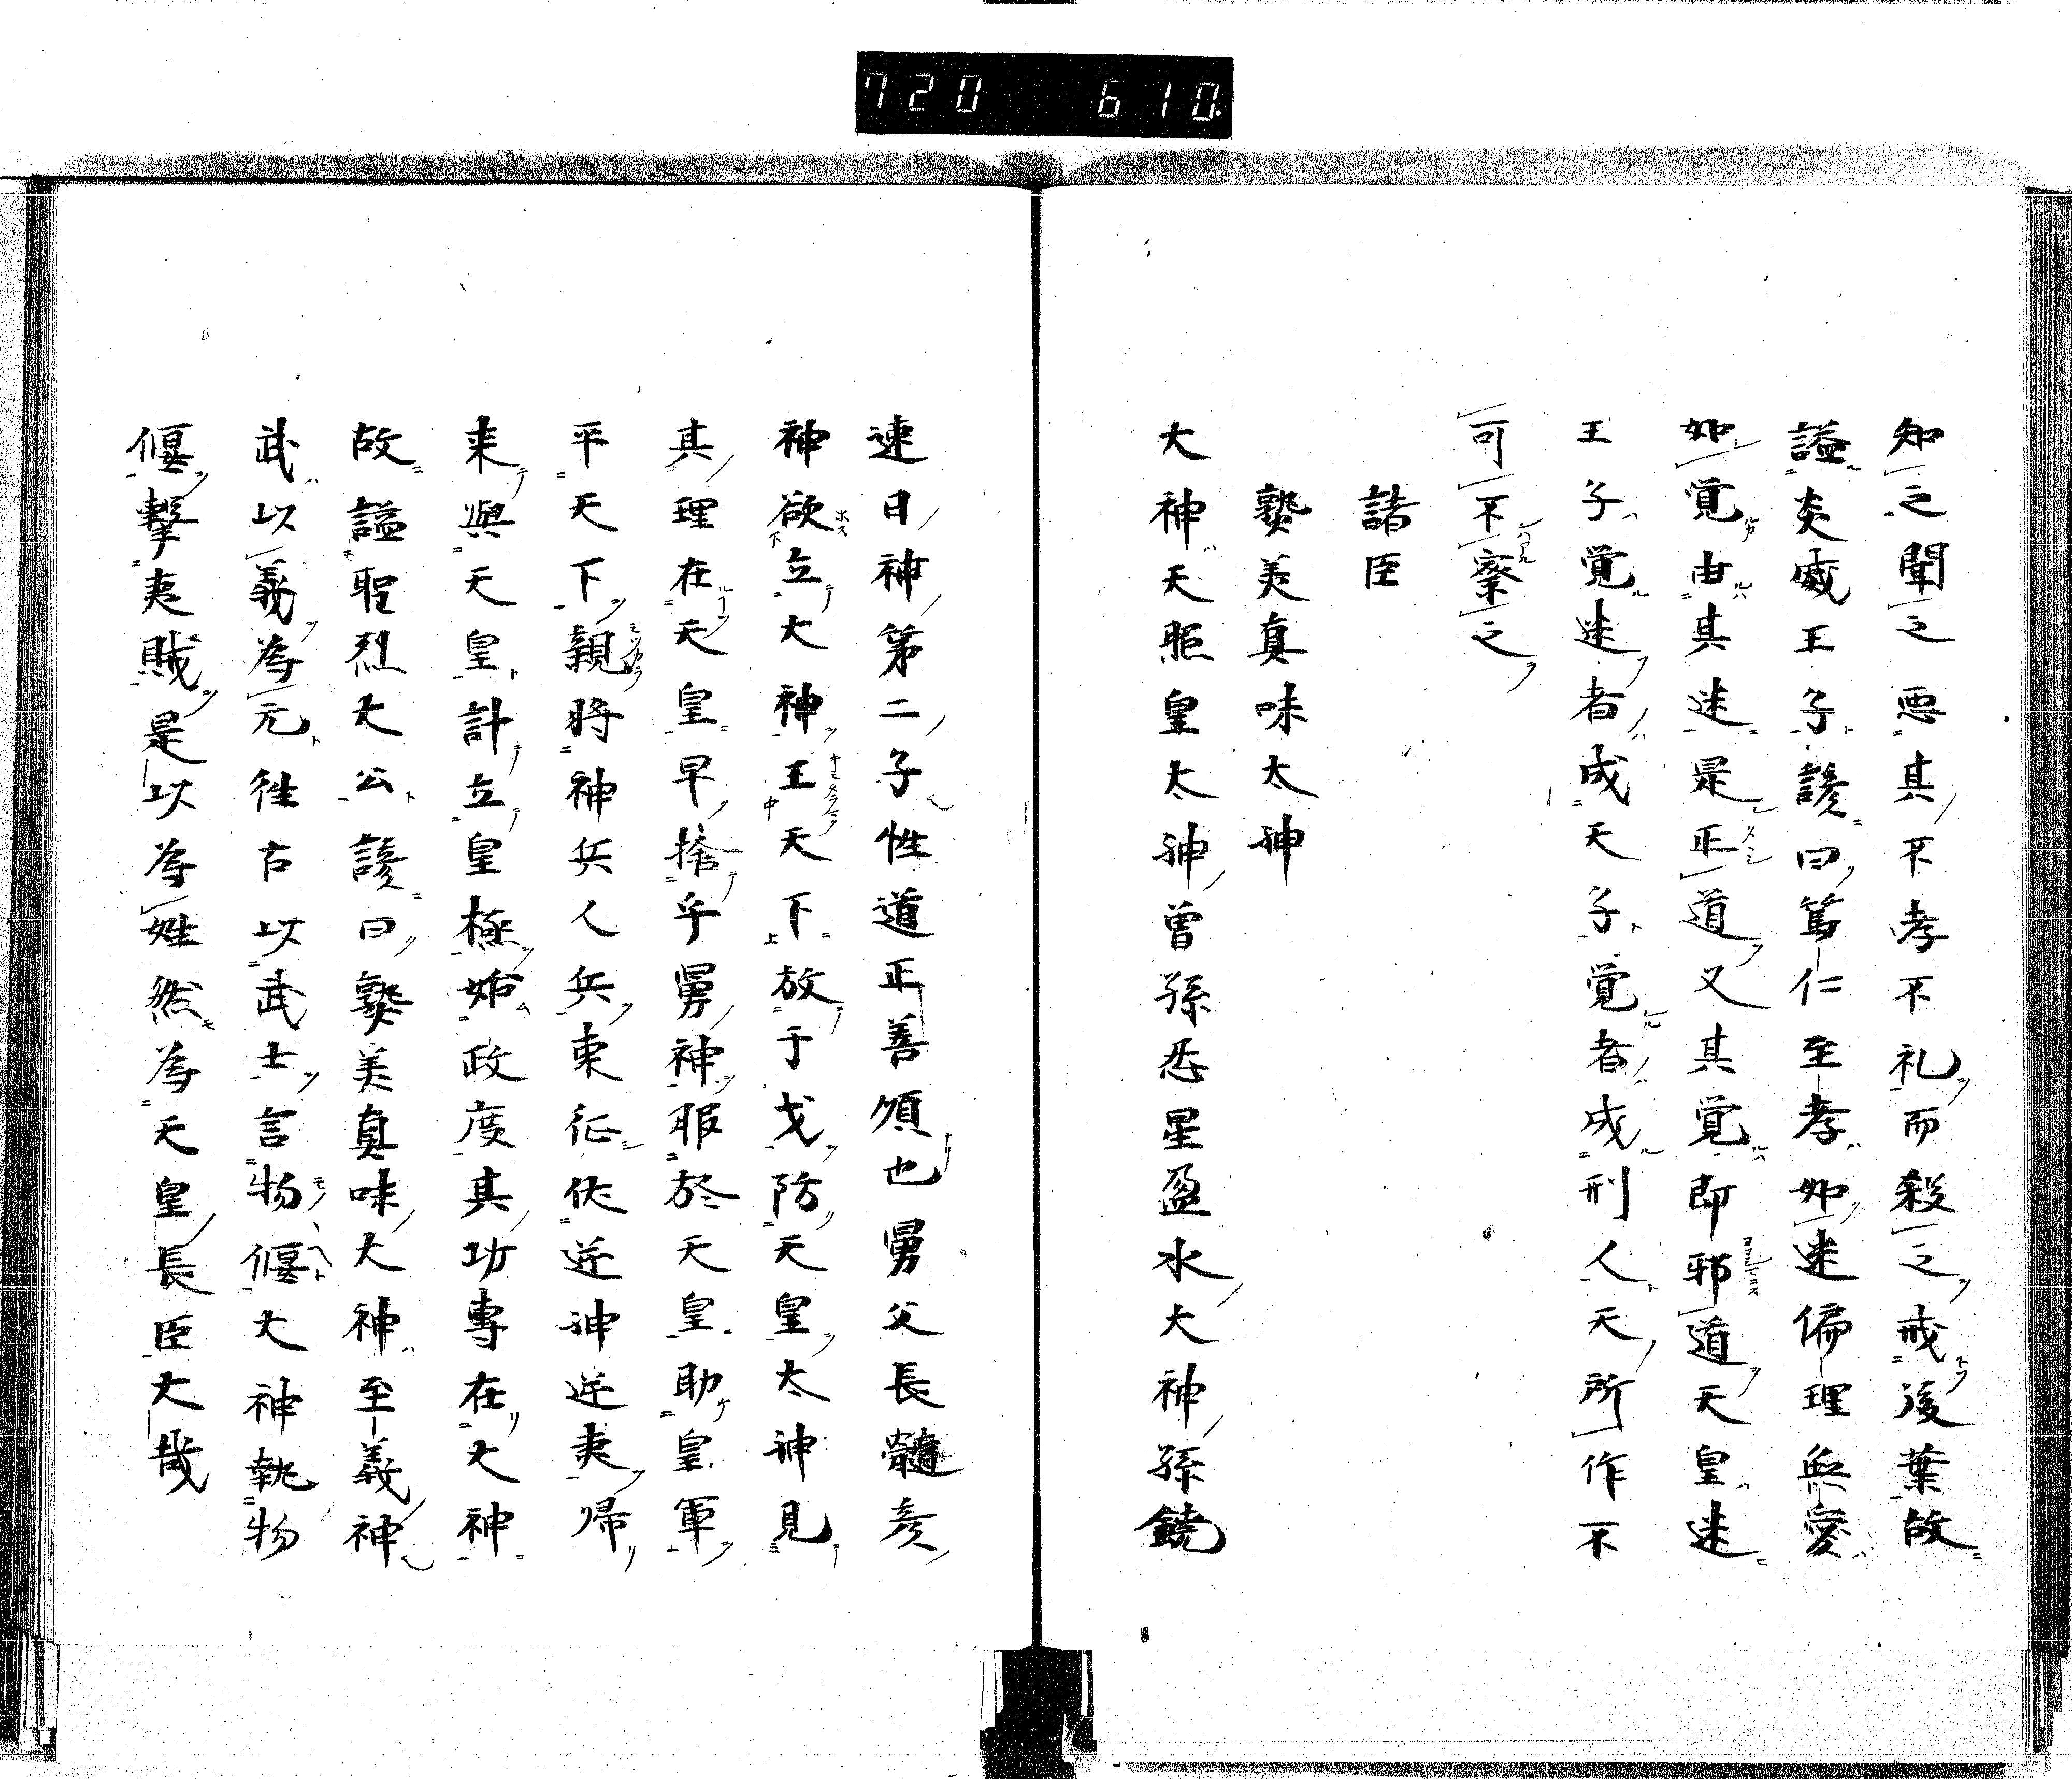 720 610.
知之聞之惡其不孝不礼而殺之戒後葉故
謚炎威王子諺曰篤仁至孝如迷偏理無愛
如覚由其迷是正道又其覚即邪道天皇迷
王子覚迷者成天子覚者成刑人天所作不
可不察之
諸臣
美真味太神
大神天照皇太神曽孫忍星盈水大神孫鐃
速日神第二子性道正善須也舅父長髓彦
神欲立大神王天下故于戈防天皇太神見
其理在天皇早捨乎舅神服於天皇助皇軍
平天下親将神兵人兵東征伏逆神逆夷帰
来與天皇計立皇極始政度其功專在大神
故謚聖烈大公諺曰美真味大神至義神
武以義為元往古以武士言物偃大神執物
偃撃夷賊是以為姓然為天皇長臣大哉